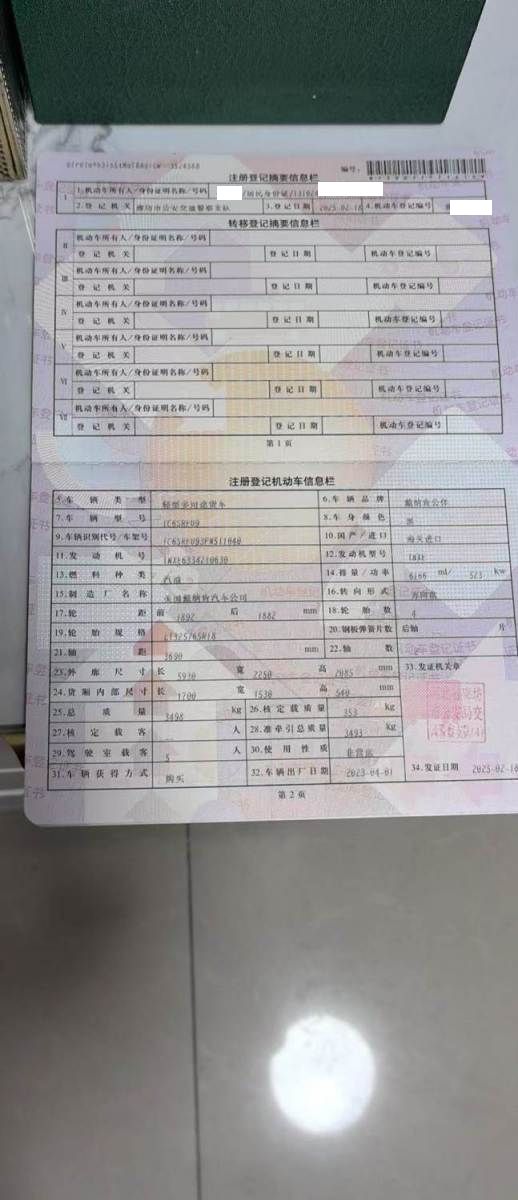 注册登记摘要信息栏
编号:
I 1.机动车所有人/身份证明名称/号码 /居民身份证/
2.登记机关 廊坊市公安交通警察支队 3.登记日期 2025-02-18 4.机动车登记编号
转移登记摘要信息栏
II 机动车所有人/身份证明名称/号码
登记机关 登记日期 机动车登记编号
III 机动车所有人/身份证明名称/号码
登记机关 登记日期 机动车登记编号
IV 机动车所有人/身份证明名称/号码
登记机关 登记日期 机动车登记编号
V 机动车所有人/身份证明名称/号码
登记机关 登记日期 机动车登记编号
VI 机动车所有人/身份证明名称/号码
登记机关 登记日期 机动车登记编号
VII 机动车所有人/身份证明名称/号码
登记机关 登记日期 机动车登记编号
第1页
注册登记机动车信息栏
5.车辆类型 轻型多用途货车 6.车辆品牌
7.车辆型号 1C6SRFU9 8.车身颜色 黑
9.车辆识别代号/车架号 10.国产/进口 海关进口
11.发动机号 12.发动机型号
13.燃料种类 汽油 14.排量/功率 6166 ml/ 523 kw
15.制造厂名称 16.转向形式 方向盘
17.轮距 前 1892 后 1882 mm 18.轮胎数 4
19.轮胎规格 20.钢板弹簧片数 后轴 片
21.轴距 3690 mm 22.轴数 2
23.外廓尺寸 长 5930 宽 2250 高 2085 mm 33.发证机关章
24.货厢内部尺寸 长 1700 宽 1530 高 540 mm
25.总质量 3498 kg 26.核定载质量 353 kg
27.核定载客 人 28.准牵引总质量 3493 kg
29.驾驶室载客 5 人 30.使用性质 非营运
31.车辆获得方式 购买 32.车辆出厂日期 2023-04-01 34.发证日期 2025-02-18
第2页